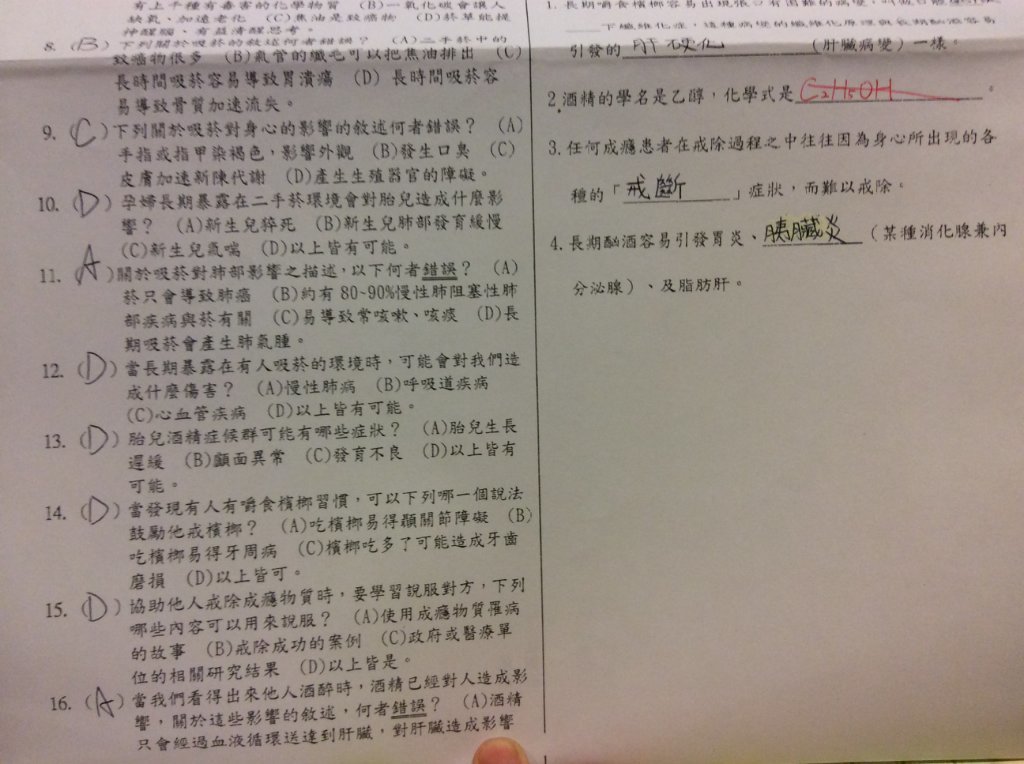 有上千種有毒害的化學物質 (B)一氧化碳會讓人
缺氧、加速老化 (C)焦油是致癌物 (D)菸草能提
神醒腦、有益清醒思考。
8. (B) 下列關於吸菸的敘述何者錯誤? (A)二手菸中的
致癌物很多 (B)氣管的纖毛可以把焦油排出 (C)
長時間吸菸容易導致胃潰瘍 (D) 長時間吸菸容
易導致骨質加速流失。
9. (C) 下列關於吸菸對身心的影響的敘述何者錯誤? (A)
手指或指甲染褐色,影響外觀 (B)發生口臭 (C)
皮膚加速新陳代謝 (D)產生生殖器官的障礙。
10. (D) 孕婦長期暴露在二手菸環境會對胎兒造成什麼影
響? (A)新生兒猝死 (B)新生兒肺部發育緩慢
(C)新生兒氣喘 (D)以上皆有可能。
11. (A) 關於吸菸對肺部影響之描述,以下何者錯誤? (A)
菸只會導致肺癌 (B)約有80~90%慢性肺阻塞性肺
部疾病與菸有關 (C)易導致常咳嗽、咳痰 (D)長
期吸菸會產生肺氣腫。
12. (D) 當長期暴露在有人吸菸的環境時,可能會對我們造
成什麼傷害? (A)慢性肺病 (B)呼吸道疾病
(C)心血管疾病 (D)以上皆有可能。
13. (D) 胎兒酒精症候群可能有哪些症狀? (A)胎兒生長
遲緩 (B)顱面異常 (C)發育不良 (D)以上皆有
可能。
14. (D) 當發現有人有嚼食檳榔習慣,可以下列哪一個說法
鼓勵他戒檳榔? (A)吃檳榔易得顳關節障礙 (B)
吃檳榔易得牙周病 (C)檳榔吃多了可能造成牙齒
磨損 (D)以上皆可。
15. (D) 協助他人戒除成癮物質時,要學習說服對方,下列
哪些內容可以用來說服? (A)使用成癮物質罹病
的故事 (B)戒除成功的案例 (C)政府或醫療單
位的相關研究結果 (D)以上皆是。
16. (A) 當我們看得出來他人酒醉時,酒精已經對人造成影
響,關於這些影響的敘述,何者錯誤? (A)酒精
只會經過血液循環送達到肝臟,對肝臟造成影響
1. 長期嚼食檳榔容易出現張口有困難的病變,叫做口腔
下纖維化症,這種病變的纖維化原理與長期酗酒容易
引發的 肝硬化 (肝臟病變)一樣。
2. 酒精的學名是乙醇,化學式是 C2H5OH 。
3. 任何成癮患者在戒除過程之中往往因為身心所出現的各
種的「 戒斷 」症狀,而難以戒除。
4. 長期酗酒容易引發胃炎、 胰臟炎 (某種消化腺兼內
分泌腺)、及脂肪肝。